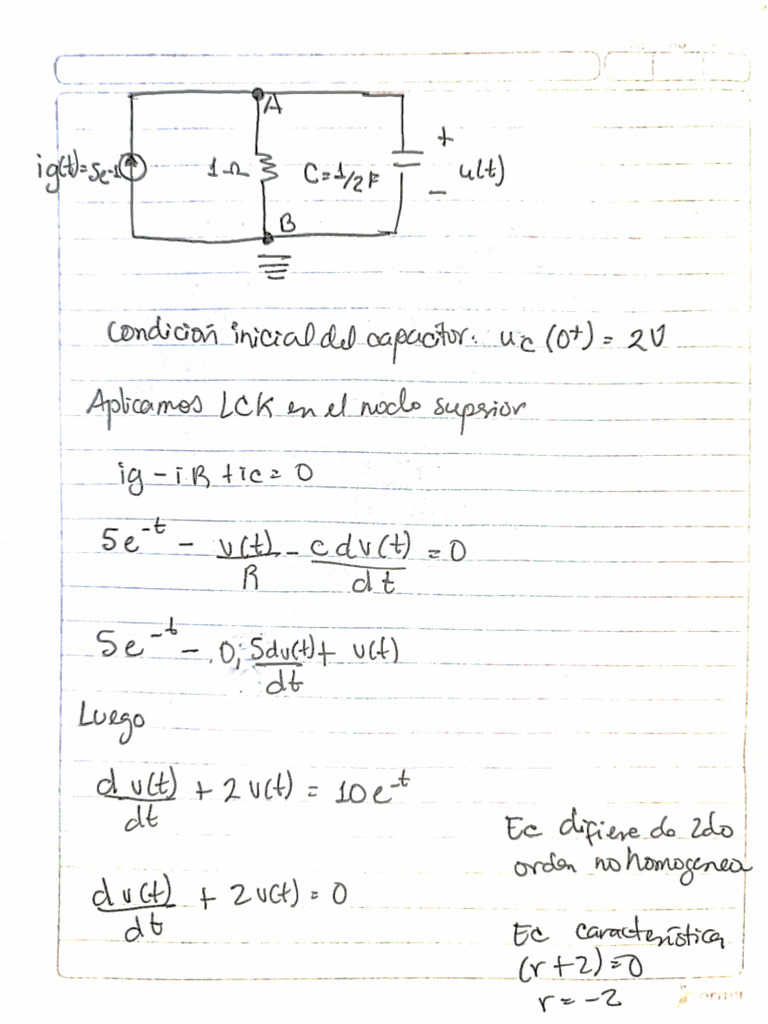 A
ig(t)=5e-1
1Ω
C=1/2 F
+
u(t)
-
B
Condición inicial del capacitor. uc (0+) = 2V
Aplicamos LCK en el nodo superior
ig - iR + ic = 0
5e^-t - v(t)/R - c dv(t)/dt = 0
5e^-t - 0,5dv(t)/dt + v(t)
Luego
dv(t)/dt + 2v(t) = 10e^-t
Ec difiere de 2do
orden no homogenea
dv(t)/dt + 2v(t) = 0
Ec característica
(r+2)=0
r = -2